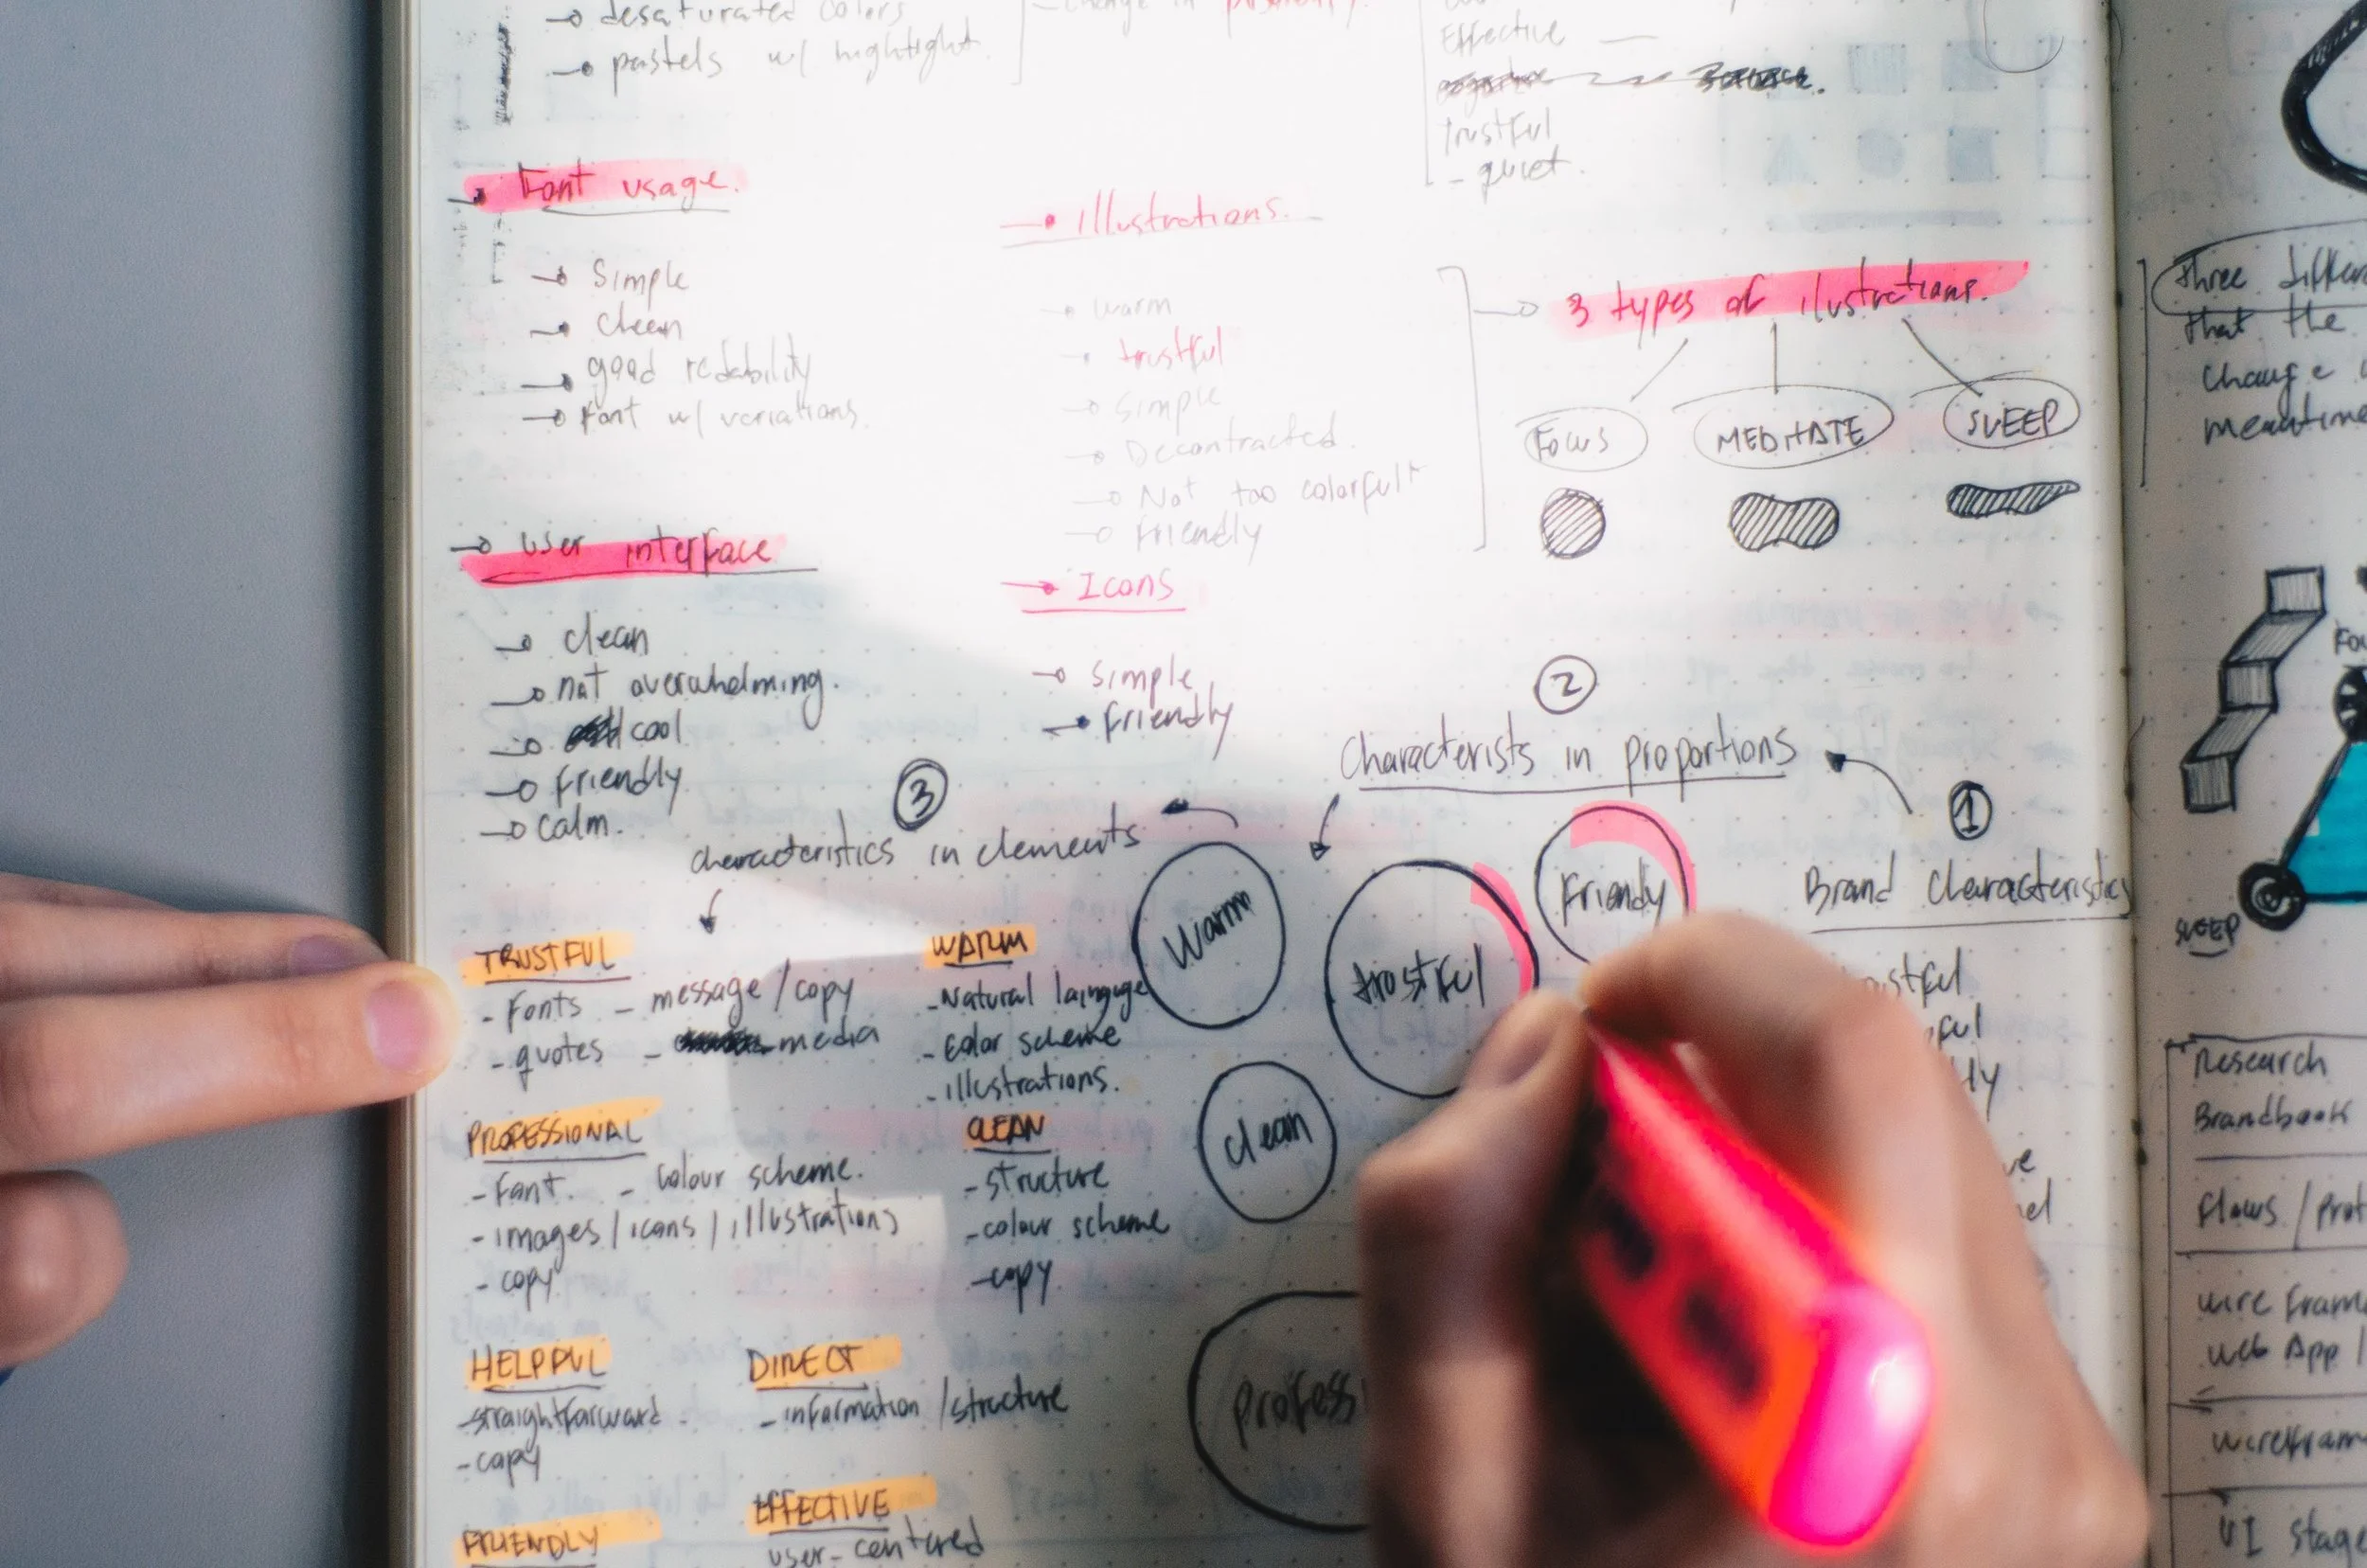 desaturated colors
pastels w/ hightlight.
change in
Effective
trustful
- quiet.
Font usage.
Simple
clean
good redability
Font w/ variations.
illustrations.
warm
trustful
Simple
Decontracted.
Not too colorful
Friendly
3 types of ilustrations.
Focus
MEDITATE
SLEEP
User interface
clean
not overwhelming.
cool
Friendly
calm.
Icons
Simple
Friendly
2
Characterists in proportions
1
Brand Characteristics
3
characteristics in elements
Warm
trostful
Friendy
clean
profess
TRUSTFUL
- Fonts - message / copy
- quotes - media
WARM
- Natural lainguge
- color scheme
- illustrations.
PROFESSIONAL
- Font. - colour scheme.
- images / icons / illustrations
- copy
CLEAN
- structure
- colour scheme
- copy.
HELPFUL
- straightforward
- copy
DIRECT
- information / structure
FRIENDLY
EFFECTIVE
user-centered
three
that the
change
SLEEP
Research
Brandbook
Flows /
wire
web App /
UI